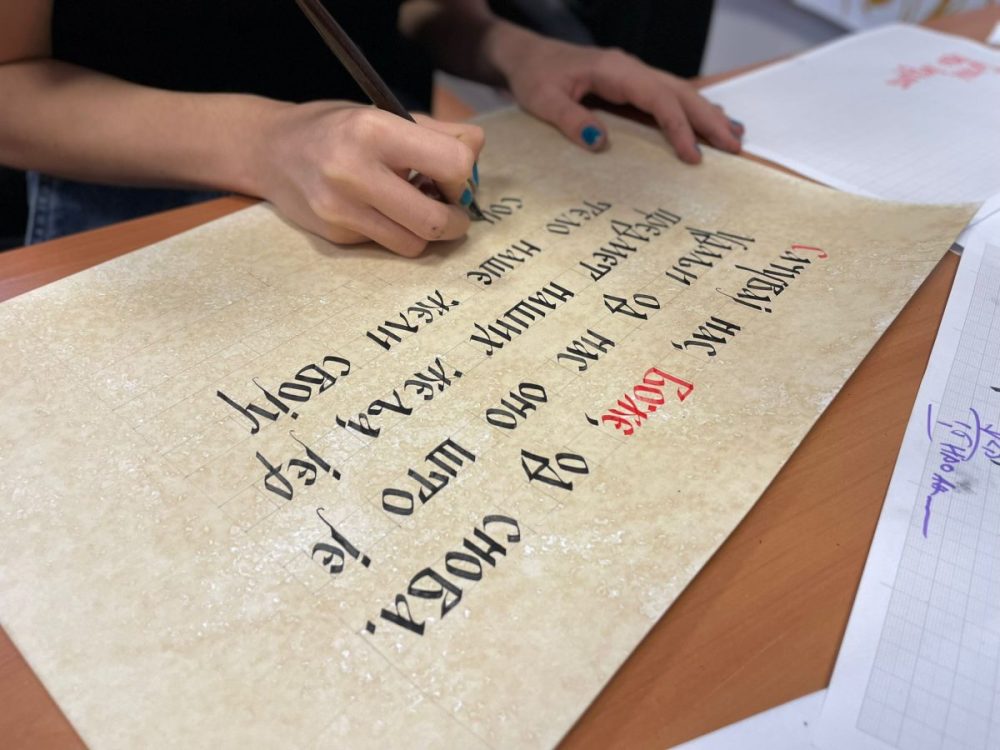 Сачувај нас, Боже, од снова.
Удаљи од нас оно што је
предмет наших жеља, јер
тело наше жели своју